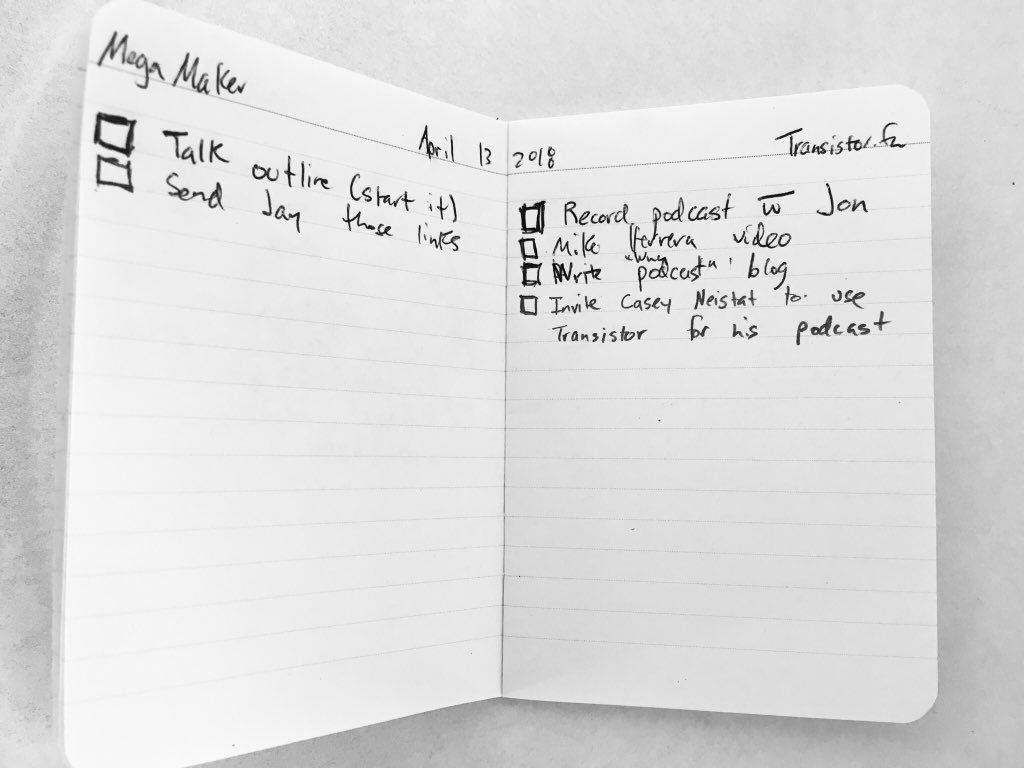 Mega Maker
April 13
Talk outline (start it)
Send Jay those links
2018
Transistor.fm
Record podcast w Jon
Mike video
"why
Write podcast" blog
Invite Casey Neistat to use
Transistor for his podcast